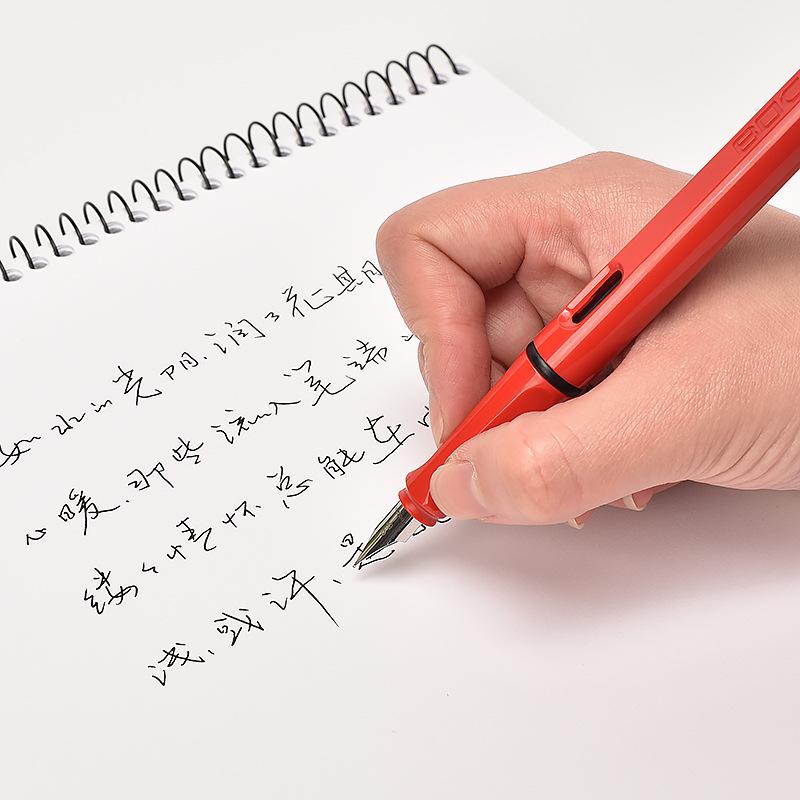 如水的光阴,润了花期
心暖,那些流入笔端
缕々情怀总能在
浅,或许,是